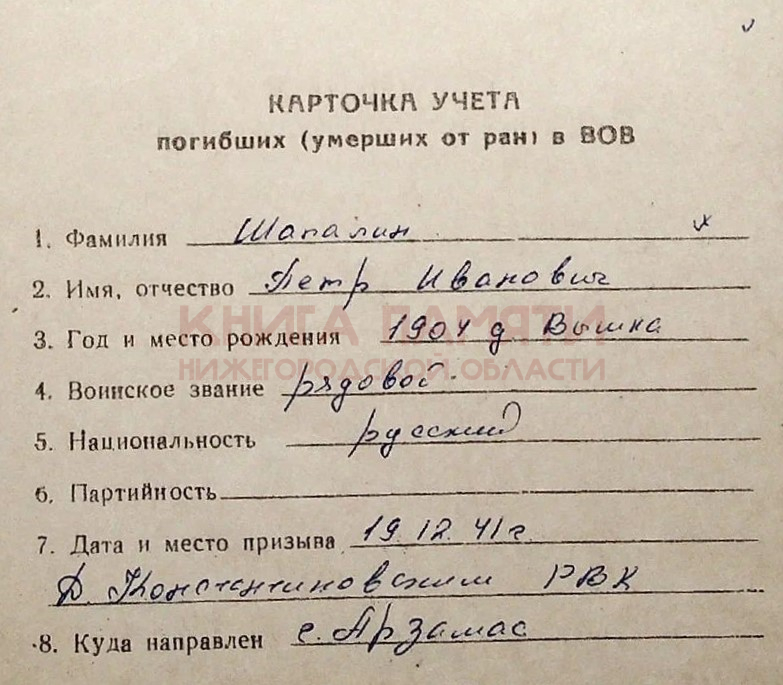 КАРТОЧКА УЧЕТА
погибших (умерших от ран) в ВОВ
1. Фамилия Шапалин
2. Имя, отчество Петр Иванович
КНИГА ПАМЯТИ
3. Год и место рождения 1904 д. Вышка
НИЖЕГОРОДСКОЙ ОБЛАСТИ
4. Воинское звание рядовой
5. Национальность русский
6. Партийность
7. Дата и место призыва 19.12.41г.
Д. Константиновским РВК
8. Куда направлен г. Арзамас